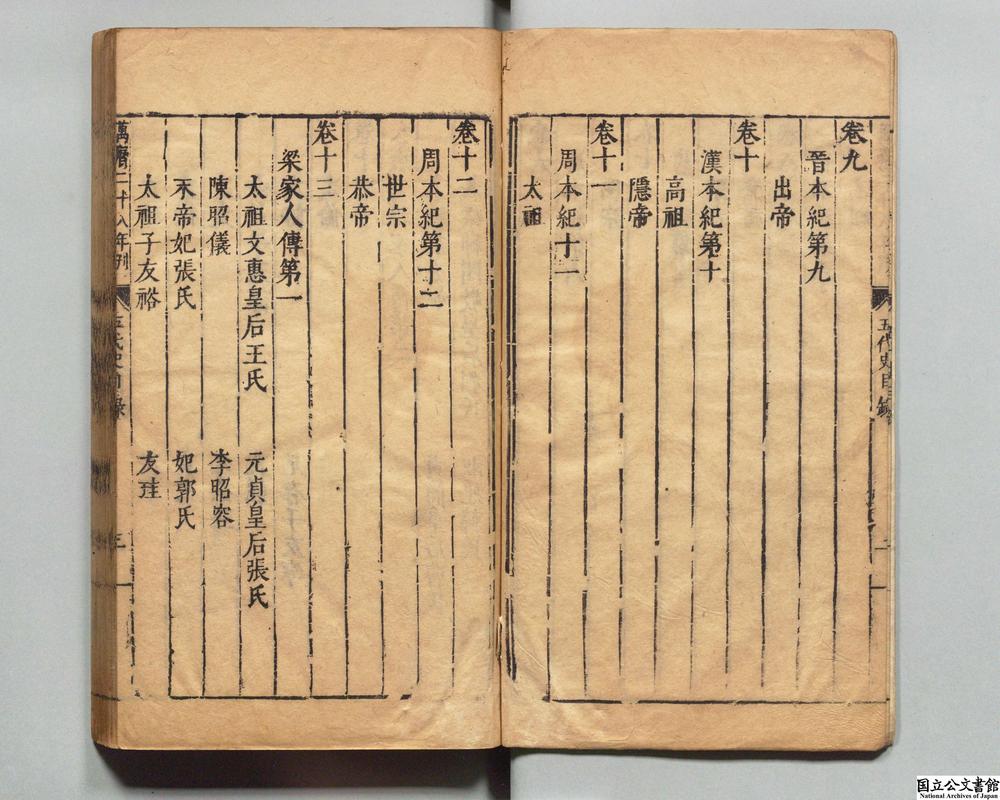 卷九
晉本紀第九
出帝
卷十
漢本紀第十
高祖
隱帝
卷十一
周本紀十一
太祖
五代史目錄
二
卷十二
周本紀第十二
世宗
恭帝
卷十三
梁家人傳第一
太祖文惠皇后王氏 元貞皇后張氏
陳昭儀 李昭容
末帝妃張氏 妃郭氏
太祖子友裕 友珪
萬曆二十八年刊
五代史目錄
三
国立公文書館
National Archives of Japan